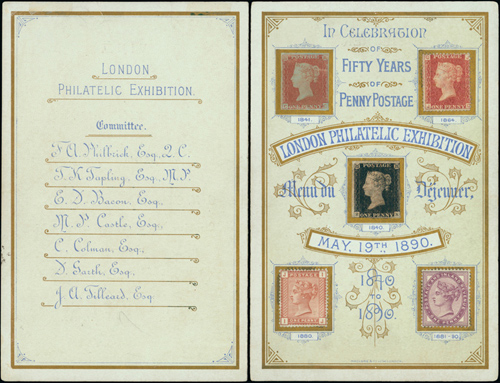 LONDON
PHILATELIC EXHIBITION.
Committee.
F. A. Philbrick, Esq., Q.C.
T. K. Tapling, Esq., M.P.
E. D. Bacon, Esq.,
M. P. Castle, Esq.,
C. Colman, Esq.,
D. Garth, Esq.,
J. A. Tilleard, Esq.
IN CELEBRATION
OF
FIFTY YEARS
OF
PENNY POSTAGE
ONE PENNY
1841.
ONE PENNY
1864.
LONDON PHILATELIC EXHIBITION
Menu du Déjeuner,
POSTAGE
ONE PENNY
1840.
MAY. 19TH 1890.
1840
TO
1890.
1880.
1881-90.